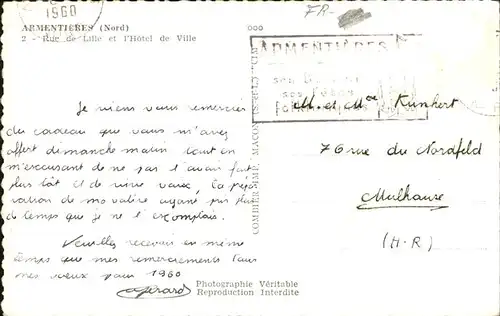 1960
FR-
ARMENTIÈRES (Nord)
2 - Rue de Lille et l'Hôtel de Ville
ARMENTIÈRES
Je viens vous remercier
du cadeau que vous m'avez
offert dimanche matin tout en
m'excusant de ne pas l'avoir fait
plus tôt et de vive voix, la
de ma voiture ayant pris plus
de temps que je ne l'escomptais.
Veuillez recevoir en même
temps que mes remerciements tous
mes voeux pour 1960
M. et Me Kunhert
76 rue du Nordfeld
Mulhouse
(H-R)
COMBIER IMP. MACON
Photographie Véritable
Reproduction Interdite